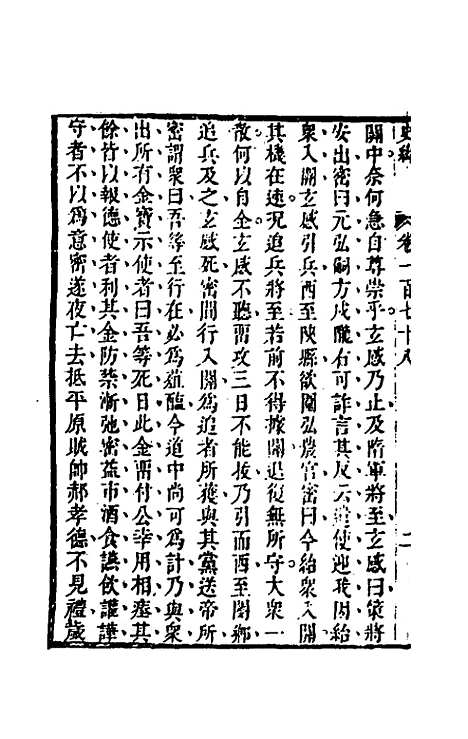 史緯　卷一百七十八　二
關中奈何急自尊崇乎玄感乃止及隋軍將至玄感曰策將
安出密曰元弘嗣方戍隴右可詐言其反云遣使迎我因紿
衆入關玄感引兵西至陝縣欲圍弘農宮密曰今紿衆入關
其機在速況追兵將至若前不得據關退復無所守大衆一
散何以自全玄感不聽留攻三日不能拔乃引而西至閿鄉
追兵及之玄感死密間行入關爲追者所獲與其黨送帝所
密謂衆曰吾等至行在必爲葅醢今道中尚可爲計乃與衆
出所有金寶示使者曰吾等死日此金留付公幸用相瘞其
餘竹以報德使者利其金防禁漸弛密益市酒食讌飲讙譁
守者不以爲意密遂夜亡去抵平原賊帥郝孝德不見禮歲